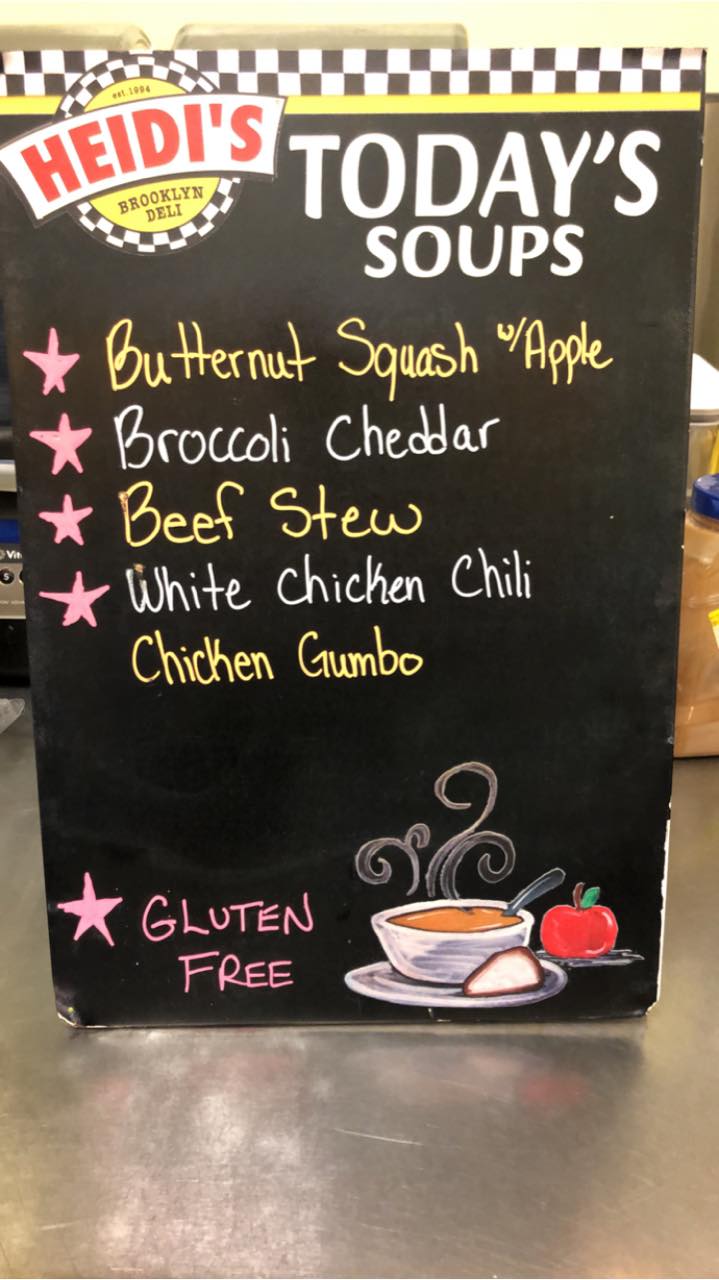 est. 1994
HEIDI'S
BROOKLYN
DELI
TODAY'S
SOUPS
Butternut Squash w/Apple
Broccoli Cheddar
Beef Stew
White Chicken Chili
Chicken Gumbo
GLUTEN
FREE